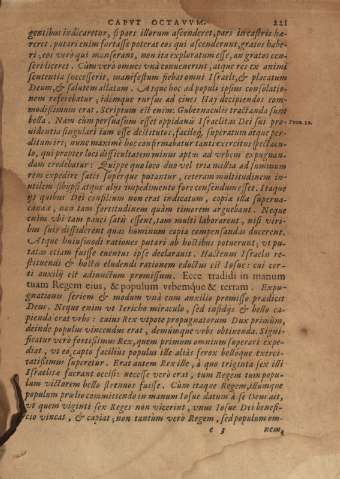 CAPVT OCTAVVM. 221
gentibus indicaretur, si pars illorum ascenderet, pars in castris hæ-
reret. putari enim fortasse poterat eos qui ascenderunt, gratos habe-
ri, eos verò qui manserant, non ita exploratum esse, an gratos cen-
seri liceret. Cùm verò omnes vnà conuenerint, atque res ex animi
sententia successerit, manifestum fiebat omni Israeli, & placatum
Deum, & salutem allatam. Atque hoc ad populi ipsius consolatio-
nem referebatur, idemque rursus ad ciues Hay decipiendos com-
modissimum erat. Scriptum est enim: Gubernaculis tractanda sunt
bella. Nam cùm persuasum esset oppidanis Israelitas Dei sui pro-
uidentia singulari iam esse destitutos, facileq́; superatum atque per-
ditum iri; nunc maximè hoc confirmabatur tanti exercitus spectacu-
lo, qui propter loci difficultatem minus aptus ad vrbem expugnan-
dam credebatur: Quippe quo loco duo vel tria millia ad summum
rem expedire satis superque putantur, ceteram multitudinem in-
utilem sibiipsi atque alijs impedimento fore censendum esset. Itaque
ijs quibus Dei consilium non erat indicatum, copia illa superua-
canea, non tam fortitudinem quàm timorem arguebant. Neque
enim vbi tam pauci satis essent, tam multi laborarent, nisi viri-
bus suis diffiderent quas hominum copia compensandas ducerent.
Atque huiusmodi rationes putari ab hostibus potuerunt, vt pu-
tatas etiam fuisse euentus ipse declarauit. Hactenus Israelis re-
ficiendi & hostis eludendi rationem edoctus est Iosue: cui cer-
ti auxilij est adiunctum promissum. Ecce tradidi in manum
tuam Regem eius, & populum vrbemque & terram. Expu-
gnationis seriem & modum vnà cum auxilio promisso prædicit
Deus. Neque enim vt Iericho miraculo, sed insidijs & bello ca-
pienda erat vrbs: cuius Rex vtpote propugnatorum Dux primùm,
deinde populus vincendus erat, demùmque vrbs obtinenda. Signi-
ficatur verò fortissimus Rex, quem primum omnium superari expe-
diat, vt eo capto facilius populus ille aliàs ferox belloque exerci-
tatissimus superetur. Erat autem Rex ille, à quo triginta sex illi
Israelitæ fuerant occisi: necesse verò erat, tum Regem tum popu-
lum victorem bello strenuos fuisse. Cùm itaque Regem, illumque
populum prælio committendo in manum Iosue datum à se Deus ait,
vt quem viginti sex Reges non vicerint, vnus Iosue Dei benefi-
cio vincat, & capiat; non tantùm verò Regem, sed populum om-
e 3 nem,